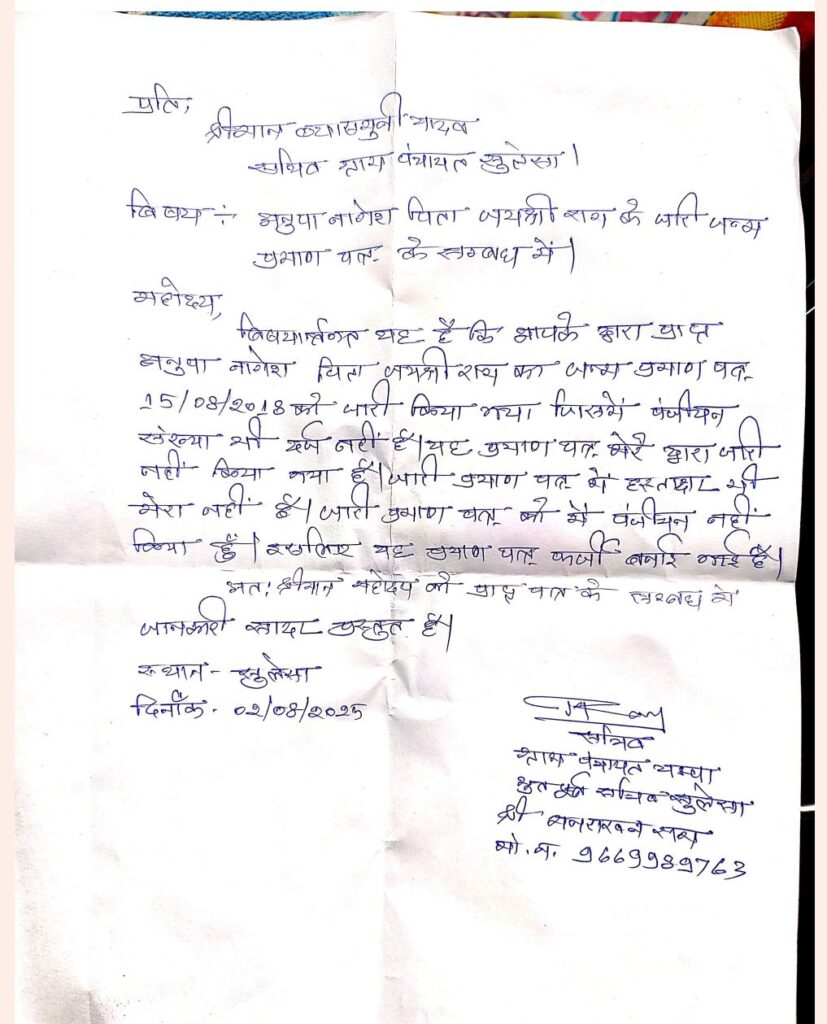 प्रति,
श्रीमान व्यासमुनी यादव
सचिव ग्राम पंचायत सुलेसा।
विषय :- अनुपा नागेश पिता जयश्री राम के जारी जन्म
प्रमाण पत्र के सम्बंध में।
महोदय,
विषयार्न्तगत यह है कि आपके द्वारा प्राप्त
अनुपा नागेश पिता जयश्री राम का जन्म प्रमाण पत्र
15/08/2018 को जारी किया गया जिसमें पंजीयन
संख्या भी दर्ज नहीं है। यह प्रमाण पत्र मेरे द्वारा जारी
नहीं किया गया है। जारी प्रमाण पत्र में हस्ताक्षर भी
मेरा नहीं है। जारी प्रमाण पत्र को मै पंजीयन नहीं
किया हूँ। इसलिए यह प्रमाण पत्र फर्जी बनाई गई है।
अतः श्रीमान महोदय को प्राप्त पत्र के सम्बंध में
जानकारी सादर प्रस्तुत है।
स्थान - सुलेसा
दिनाँक - 02/08/2025
सचिव
ग्राम पंचायत चम्पा
भुतपूर्व सचिव सुलेसा
श्री
मो. न. 9669989763